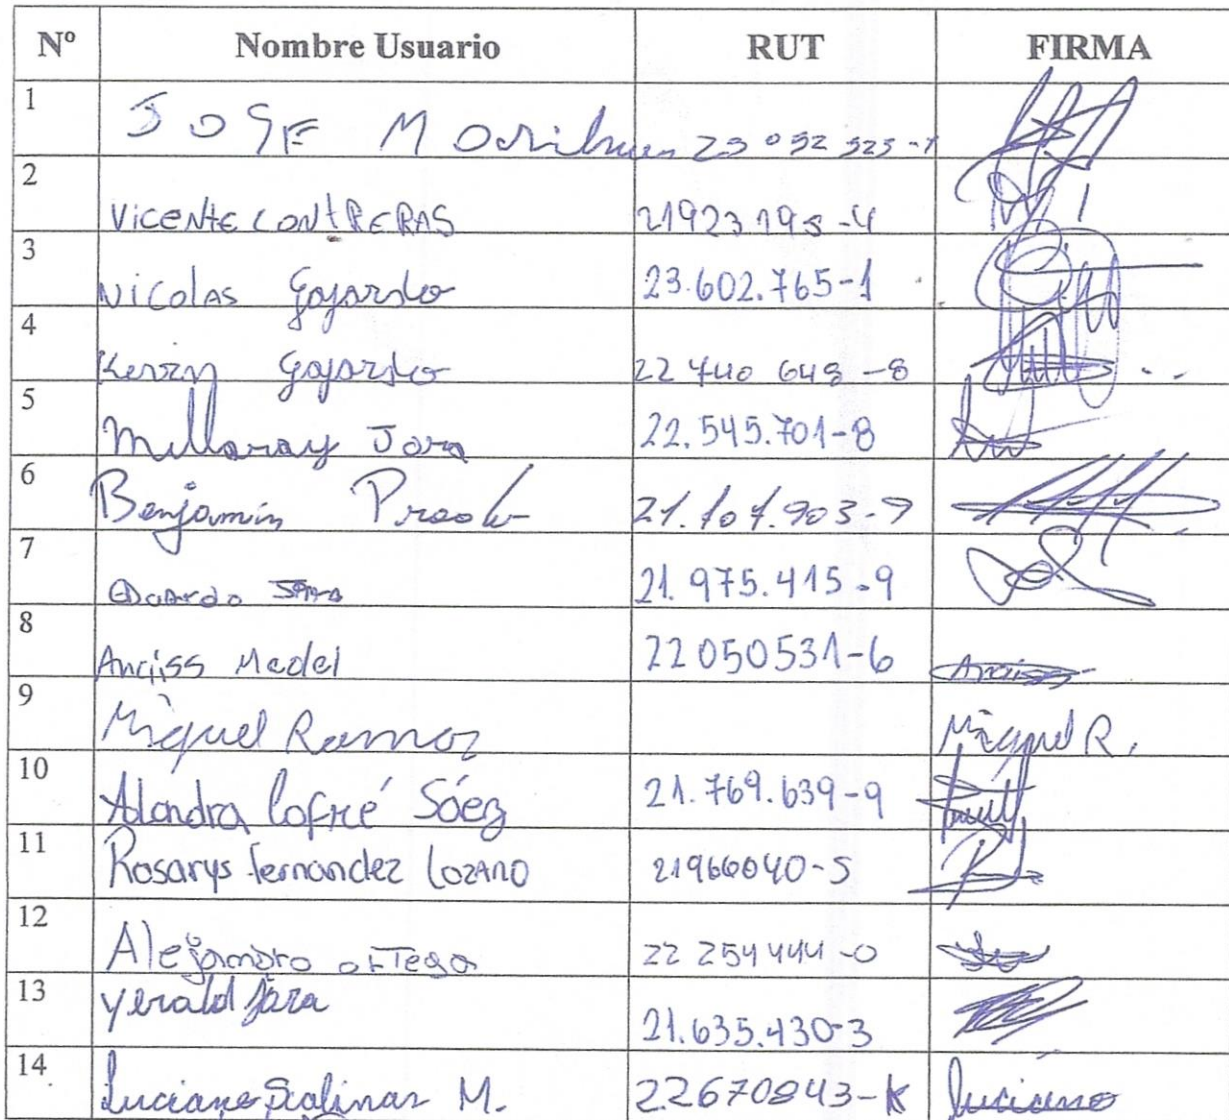 Nº Nombre Usuario RUT FIRMA
1 JOSE Marihuen
2 Vicente CONTRERAS 21923195-4
3 Nicolas Gajardo 23.602.765-1
4 Kevin Gajardo 22 440 648-8
5 Millaray Jara 22.545.701-8
6 Benjamin 21.107.903-9
7 Eduardo Jara 21.975.415-9
8 Anaiss Medel 22050531-6 Anaiss
9 Miguel Ramos Miguel R.
10 Alondra Cofré Sáez 21.769.639-9
11 Rosarys fernandez Lozano 21966040-5
12 Alejandro orTega 22 254444-0
13 yerald jara 21.635.430-3
14 Luciano M. 22670843-K Luciano